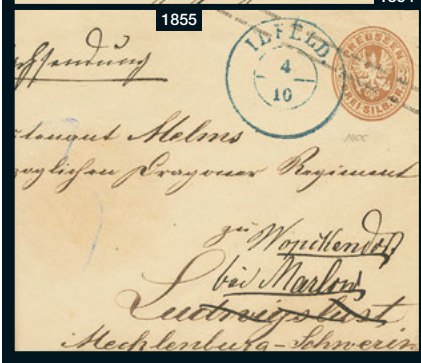 1855
ILFELD.
4
10
PREUSSEN
DREI SILB. GR.
Melms
Dragoner Regiment
zu
bei Marlow
Ludwigslust
Mecklenburg-Schwerin